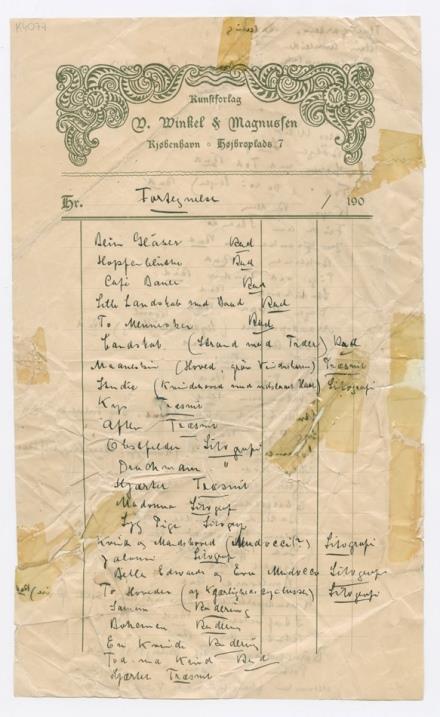 K4077
Kunstforlag
V. Winkel & Magnussen
Kjøbenhavn Højbroplads 7
Hr. Fortegnelse / 190
Beim Gläser Rad
Hopfenblüthe Rad
Café Bauer Rad
Lille Landskab med Baad Rad
To Mennesker Rad
Landskab (Strand med Træer) Rad
Maaneskin (Hoved, grøn Træsnit
Studie (Kvindehoved med udslaaet Haar) Litografi
Kys Træsnit
Aften Træsnit
Obstfelder Litografi
Drachmann "
Hjærter Træsnit
Madonna Litograf
Syg Pige Litograf
Kvinde og Mandshoved (Mudocci?) Litografi
Jalousi Litograf
Bella Edwards og Eva Mudocci Litograf
To Hoveder (af Kjærlighedscyclusse) Litografi
Radering
Bohemen Radering
En Kvinde Radering
Død. med Kind Rad
Hjærtet Træsnit